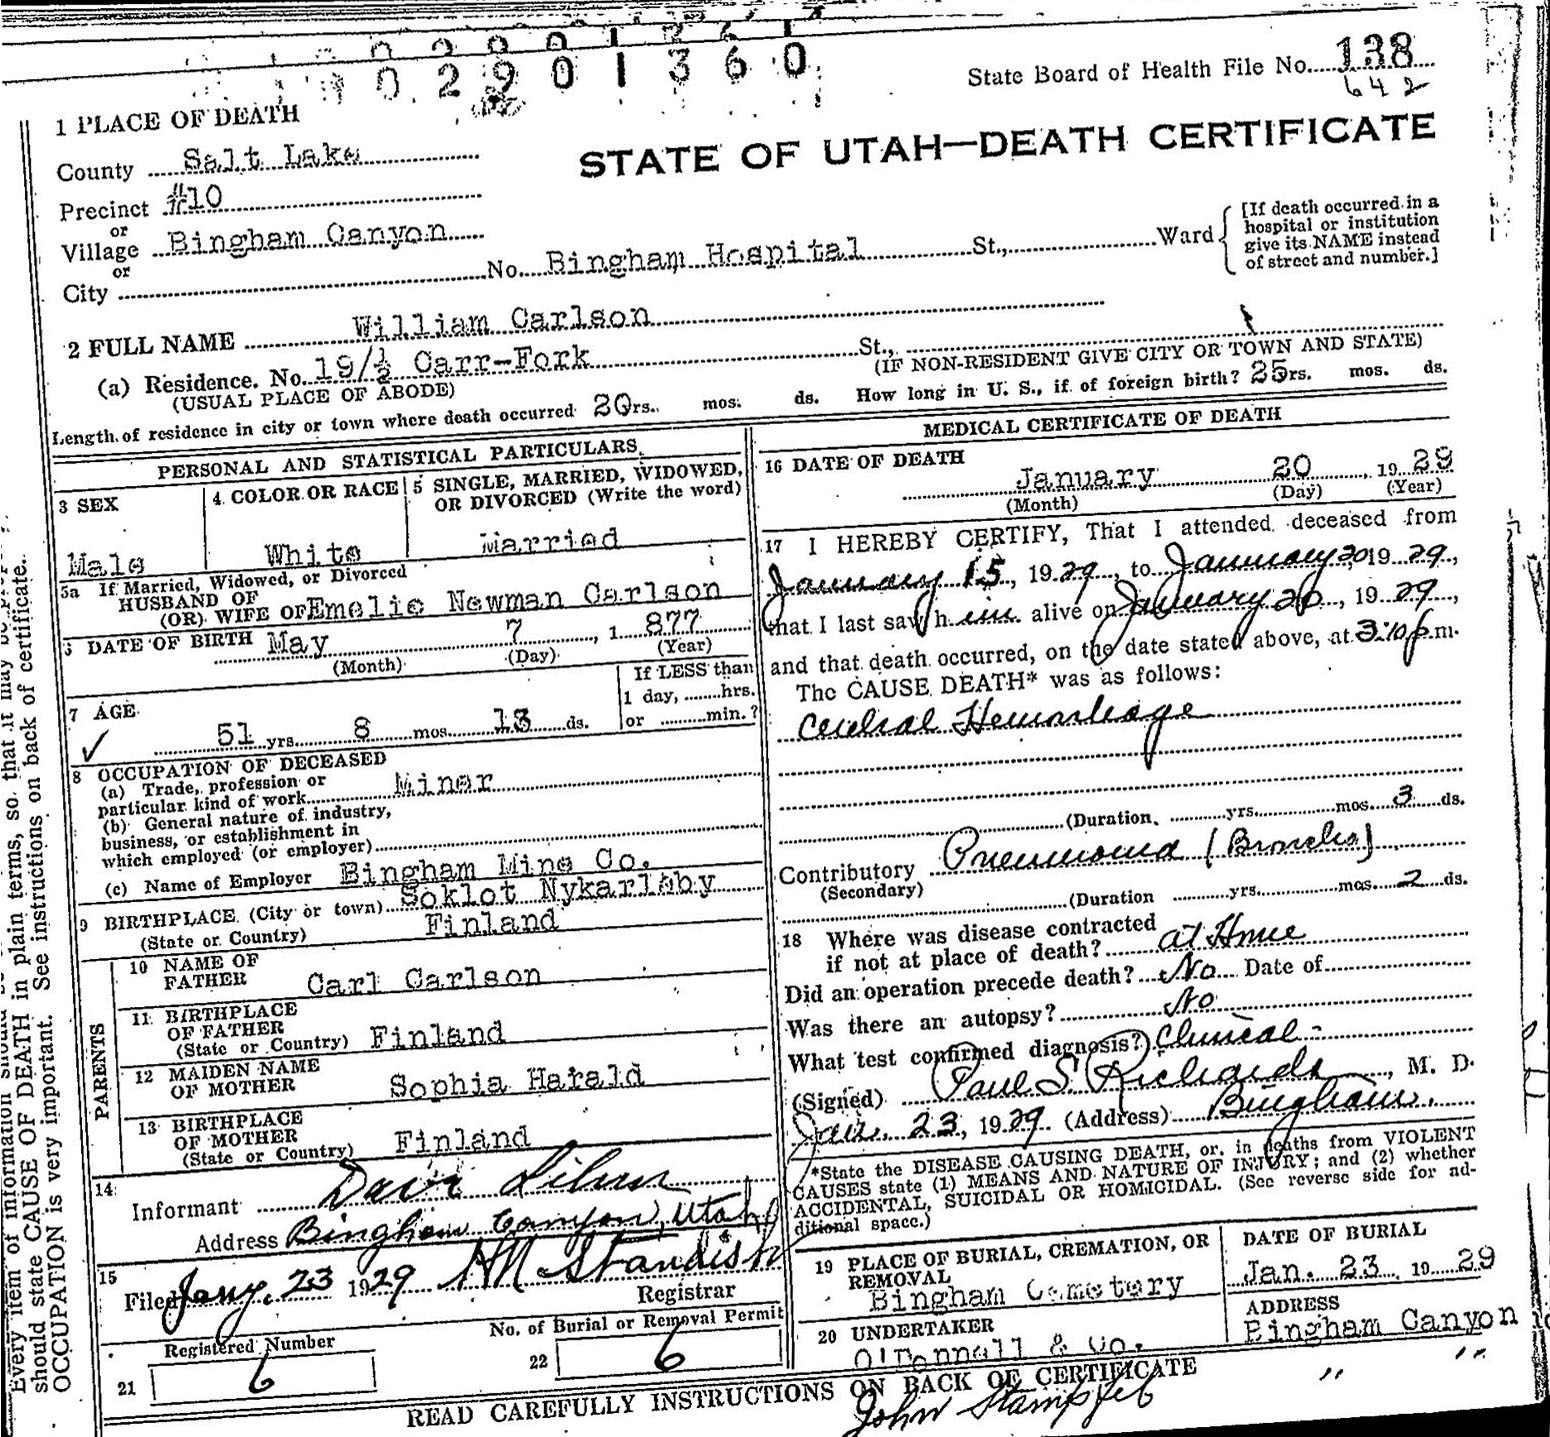 0 2 9 0 1 3 6 0
State Board of Health File No. 138
642
1 PLACE OF DEATH
STATE OF UTAH—DEATH CERTIFICATE
County Salt Lake
Precinct #10
or
Village Bingham Canyon
or
City No. Bingham Hospital St., Ward
[If death occurred in a
hospital or institution
give its NAME instead
of street and number.]
2 FULL NAME William Carlson
(a) Residence. No. 19/½ Carr-Fork St.,
(USUAL PLACE OF ABODE)
(IF NON-RESIDENT GIVE CITY OR TOWN AND STATE)
Length of residence in city or town where death occurred 20rs. mos. ds. How long in U. S., if of foreign birth? 25rs. mos. ds.
PERSONAL AND STATISTICAL PARTICULARS
3 SEX
Male
4 COLOR OR RACE
White
5 SINGLE, MARRIED, WIDOWED,
OR DIVORCED (Write the word)
Married
5a If Married, Widowed, or Divorced
HUSBAND OF
(OR) WIFE OF Emelie Newman Carlson
6 DATE OF BIRTH May 7, 1 877
(Month) (Day) (Year)
7 AGE
51 yrs. 8 mos. 13 ds.
If LESS than
1 day, hrs.
or min.?
8 OCCUPATION OF DECEASED
(a) Trade, profession or
particular kind of work Miner
(b) General nature of industry,
business, or establishment in
which employed (or employer)
(c) Name of Employer Bingham Mine Co.
9 BIRTHPLACE (City or town) Soklot Nykarleby
(State or Country) Finland
PARENTS
10 NAME OF
FATHER Carl Carlson
11 BIRTHPLACE
OF FATHER
(State or Country) Finland
12 MAIDEN NAME
OF MOTHER Sophia Harald
13 BIRTHPLACE
OF MOTHER
(State or Country) Finland
14
Informant
Address Bingham Canyon, Utah
15
Filed Jany. 23 1929 HM Standish
Registrar
Registered Number
21 6
No. of Burial or Removal Permit
22 6
MEDICAL CERTIFICATE OF DEATH
16 DATE OF DEATH
January 20, 19 29
(Month) (Day) (Year)
17 I HEREBY CERTIFY, That I attended deceased from
January 15, 1929, to January 20 19 29,
that I last saw h im alive on January 20, 19 29,
and that death occurred, on the date stated above, at 3:10 p.m.
The CAUSE DEATH* was as follows:
Cerebral Hemorrhage
(Duration yrs. mos. 3 ds.
Contributory Pneumonia (Broncho)
(Secondary)
(Duration yrs. mos. 2 ds.
18 Where was disease contracted
if not at place of death? at Home
Did an operation precede death? No Date of
Was there an autopsy? No
What test confirmed diagnosis? Clinical
(Signed) Paul S. Richards, M. D.
Jan. 23, 1929 (Address) Bingham.
*State the DISEASE CAUSING DEATH, or, in deaths from VIOLENT
CAUSES state (1) MEANS AND NATURE OF INJURY; and (2) whether
ACCIDENTAL, SUICIDAL OR HOMICIDAL. (See reverse side for ad-
ditional space.)
19 PLACE OF BURIAL, CREMATION, OR
REMOVAL
Bingham Cemetery
DATE OF BURIAL
Jan. 23, 19 29
20 UNDERTAKER
O'Donnell & Co.
ADDRESS
Bingham Canyon
John Stampfel " "
READ CAREFULLY INSTRUCTIONS ON BACK OF CERTIFICATE
should state CAUSE OF DEATH in plain terms, so that it may be
OCCUPATION is very important. See instructions on back of certificate.